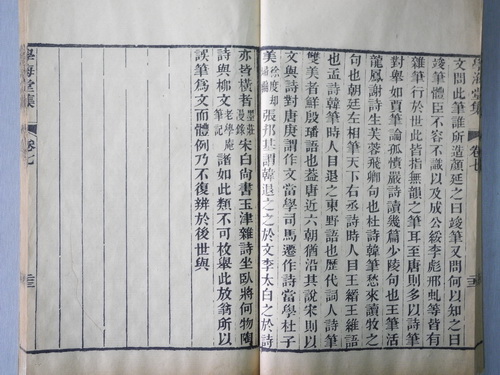 學海堂集 卷七
文問此筆誰所造顏延之曰竣筆又問何以知之曰
竣筆體臣不容不識以及成公綏李彪邢虬等皆有
雜筆行於世此皆指無韻之筆耳至唐則多以詩筆
對舉如賈筆論孤憤嚴詩賦幾篇少陵句也王筆活
龍鳳謝詩生芙蓉飛卿句也杜詩韓筆愁來讀牧之
句也朝廷左相筆天下右丞詩時人目王縉王維語
也孟詩韓筆時人目退之東野語也歷代詞人詩筆
雙美者鮮殷璠語也蓋唐近六朝猶沿其說宋則以
文與詩對唐庚謂作文當學司馬遷作詩當學杜子
美徐度卻掃編張邦基謂韓退之之於文李太白之於詩
亦皆橫者墨莊漫錄宋白尚書玉津雜詩坐臥將何物陶
詩與柳文老學庵筆記諸如此類不可枚舉此放翁所以
誤筆為文而體例乃不復辨於後世與
學海堂集 卷七